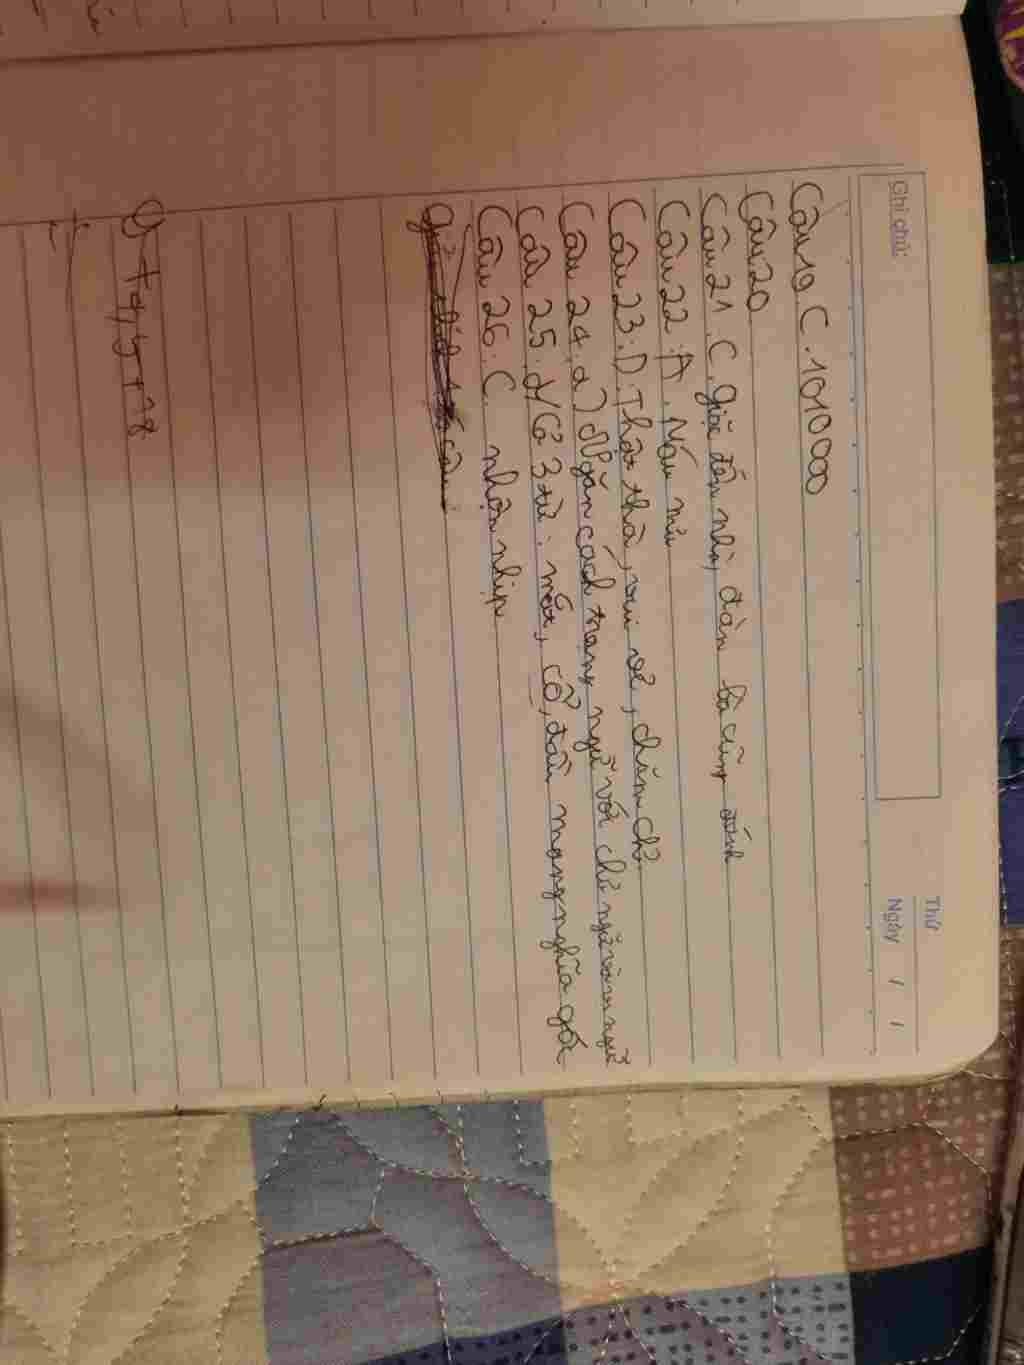 Thứ
Ghi chú:
Ngày / /
Câu 19 C. 101000
Câu 20
Câu 21. C. giặc đến nhà, đàn bà cũng đánh
Câu 22: A. Nấu nướ
Câu 23: D. Thật thà, vui vẻ, chăm chỉ
Câu 24. a) Ngăn cách trạng ngữ với chủ ngữ và vị ngữ
Câu 25: d/ Có 3 từ: mắt, cổ, đầu mang nghĩa gốc
Câu 26: C. nhộn nhịp